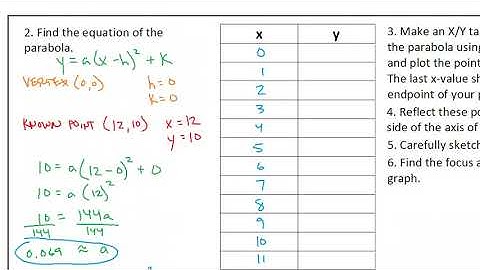 2. Find the equation of the
parabola.
y = a(x-h)² + K
VERTEX (0,0) h=0
K=0
KNOWN POINT (12,10) x=12
y=10
10 = a(12-0)² + 0
10 = a(12)²
10 = 144a
144 144
0.069 ≈ a
x y
0
1
2
3
4
5
6
7
8
9
10
11
3. Make an X/Y ta
the parabola using
and plot the point
The last x-value sh
endpoint of your p
4. Reflect these po
side of the axis of
5. Carefully sketch
6. Find the focus a
graph.